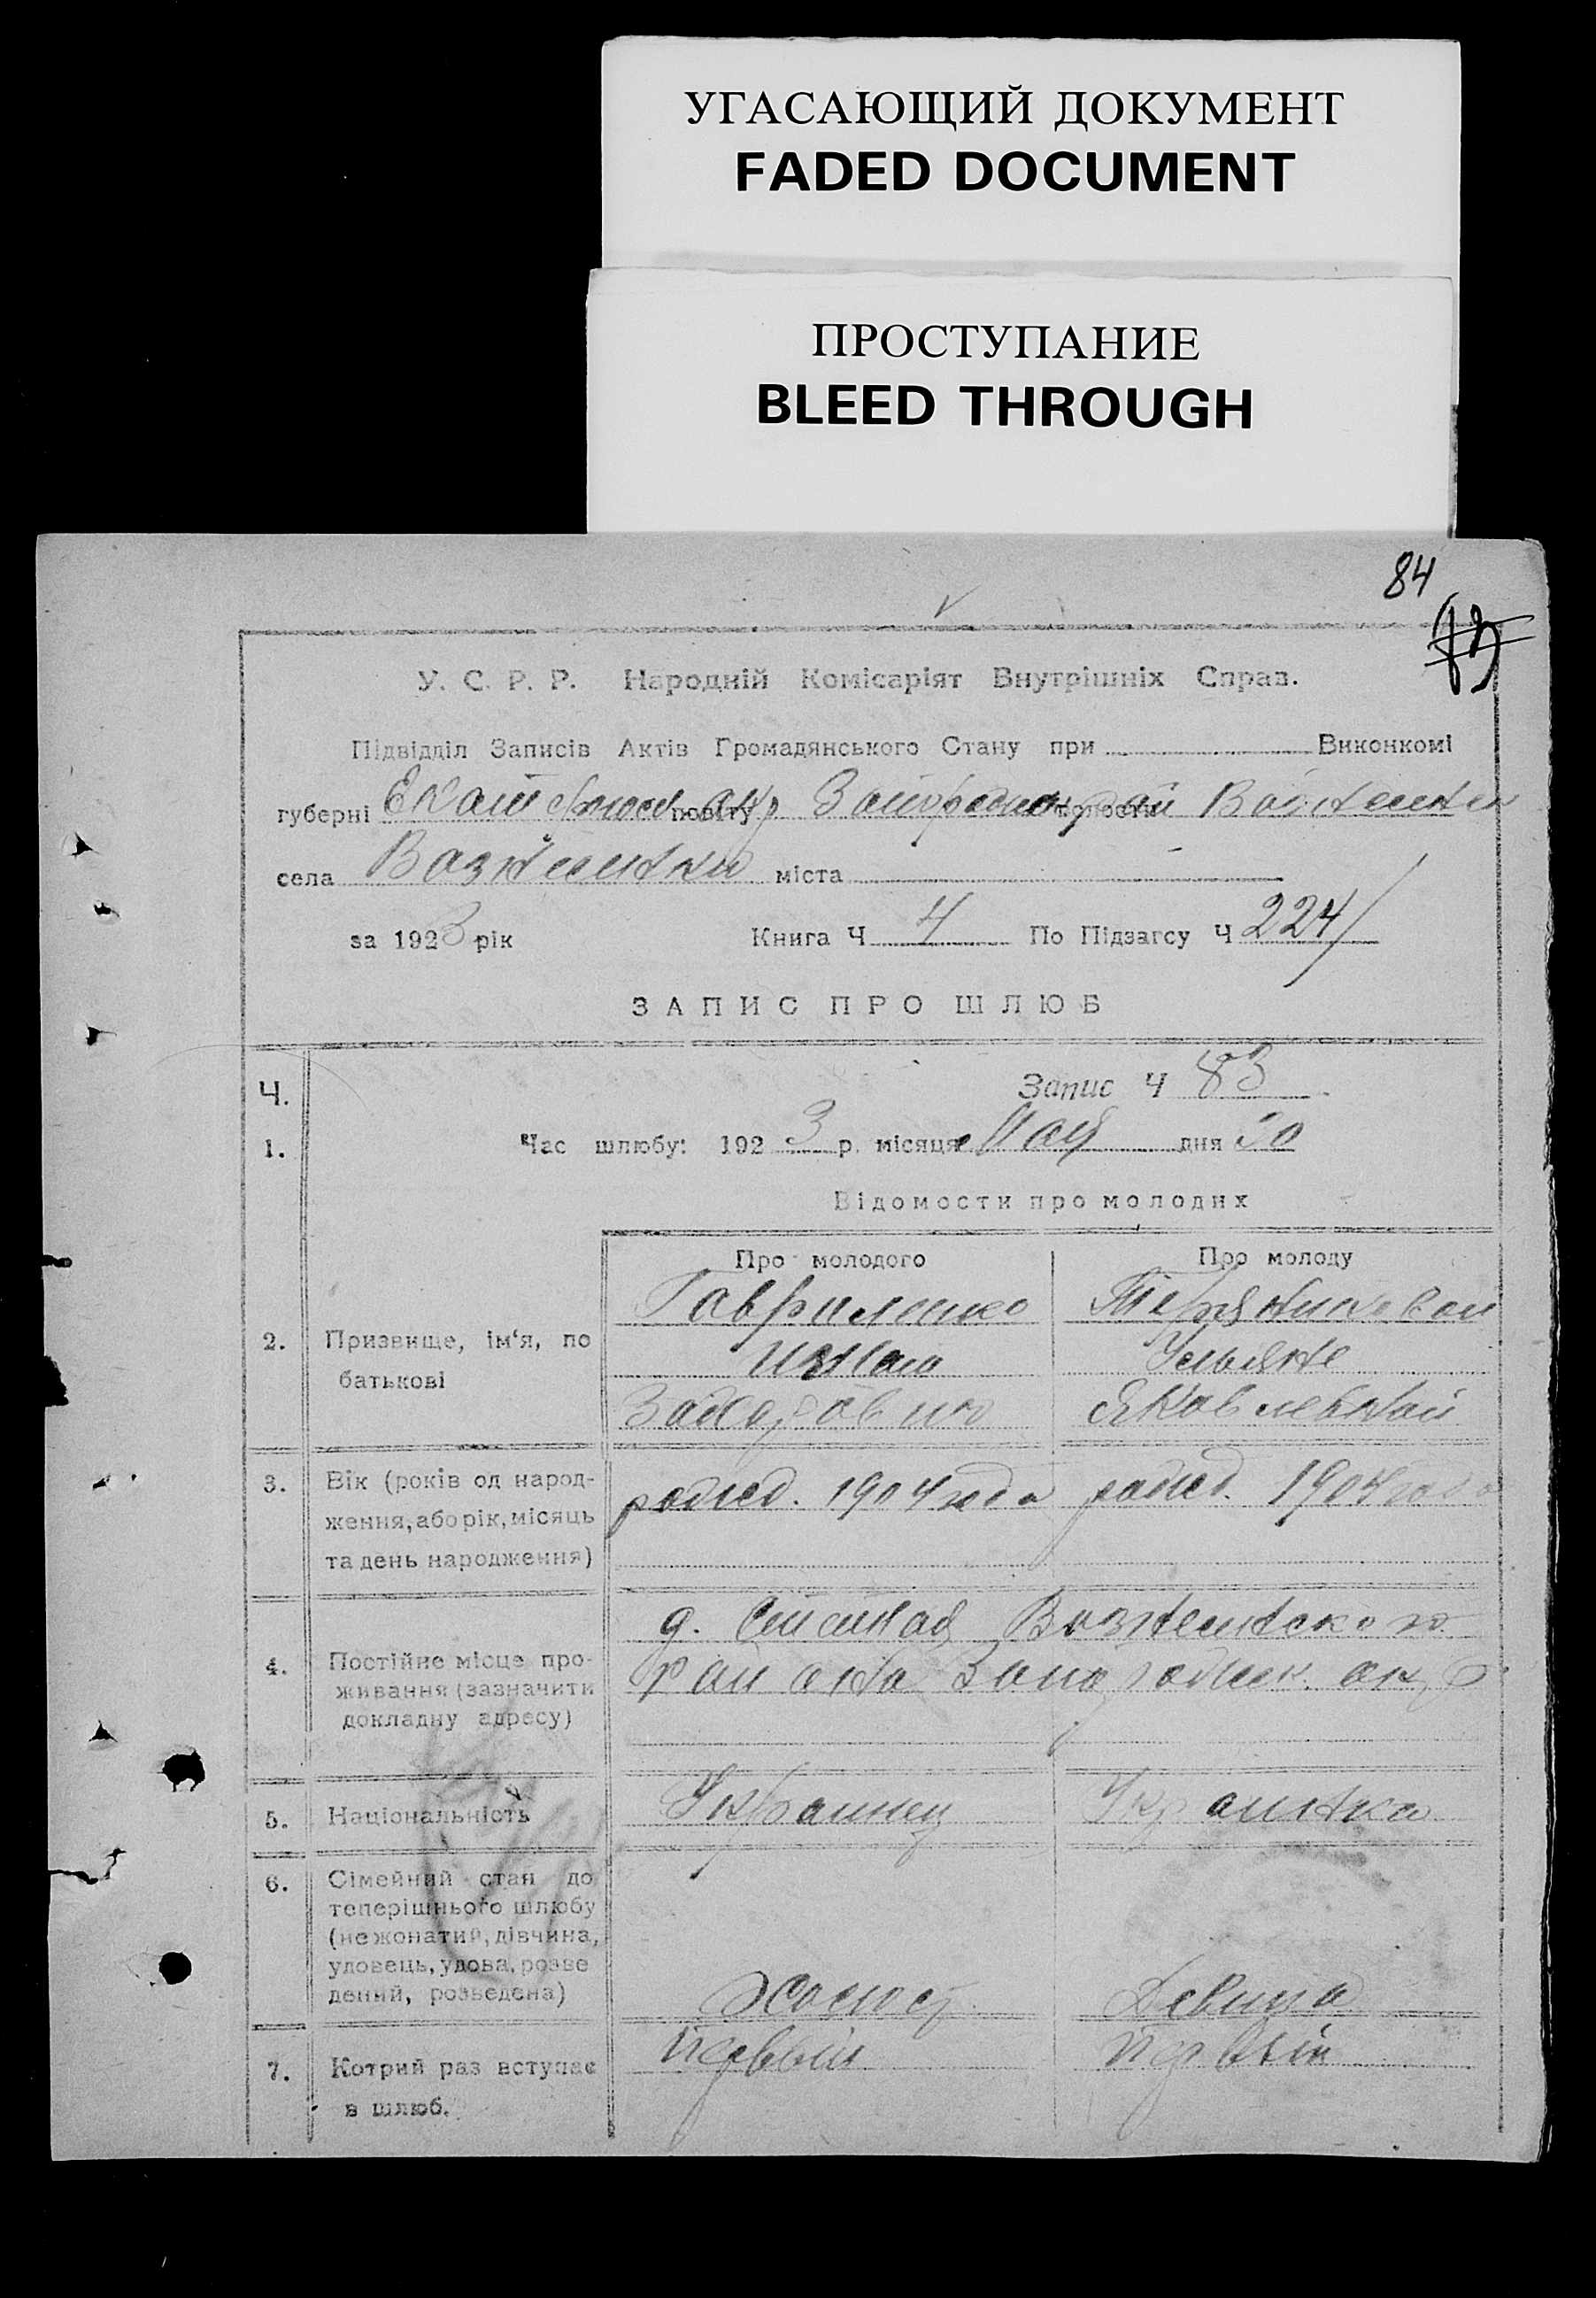 УГАСАЮЩИЙ ДОКУМЕНТ
FADED DOCUMENT
ПРОСТУПАНИЕ
BLEED THROUGH
84
У. С. Р. Р. Народній Комісаріят Внутрішніх Справ.
Підвідділ Записів Актів Громадянського Стану при Виконкомі
губерні повіту волости
села міста
за 1923 рік Книга Ч 4 По Підзагсу Ч 224
ЗАПИС ПРО ШЛЮБ
Ч. Запис Ч 83
1. Час шлюбу: 1923 р. місяця Мая дня 30
Відомости про молодих
Про молодого Про молоду
Гавриленко
2. Призвище, ім‘я, по Ульяне
батькові Захаровичю Яковлевной
3. Вік (років од народ- рожд. 1904 года рожд. 1904 года
ження, або рік, місяць
та день народження)
д. Степная Вознесенского
4. Постійне місце про- района Запорожск. окр
живання (зазначити
докладну адресу)
5. Національність Украинец Украинка
6. Сімейний стан до
теперішнього шлюбу
(нежонатий, дівчина,
удовець, удова, розве
дений, розведена) Холост Девица
7. Котрий раз вступає Первый Первый
в шлюб.